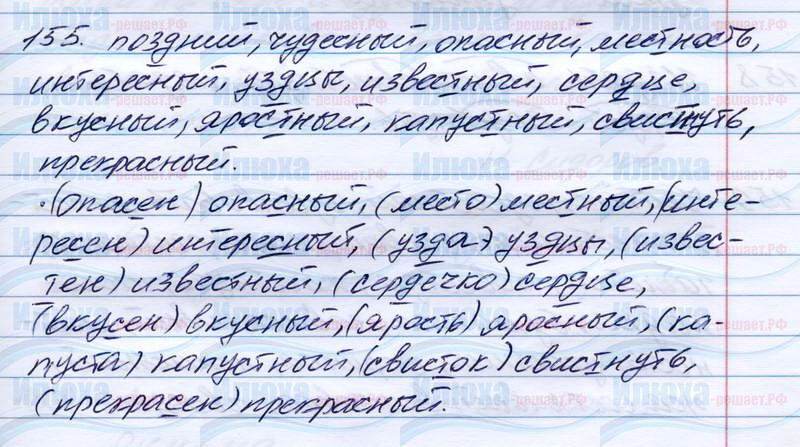 155. поздний, чудесный, опасный, местность,
интересный, уздцы, известный, сердце,
вкусный, яростный, капустный, свистнуть,
прекрасный.
·(опасен) опасный, (место) местный, (инте-
ресен) интересный, (узда) уздцы, (извес-
тен) известный, (сердечко) сердце,
(вкусен) вкусный, (ярость) яросный, (ка-
пуста) капустный, (свисток) свистнуть,
(прекрасен) прекрасный.